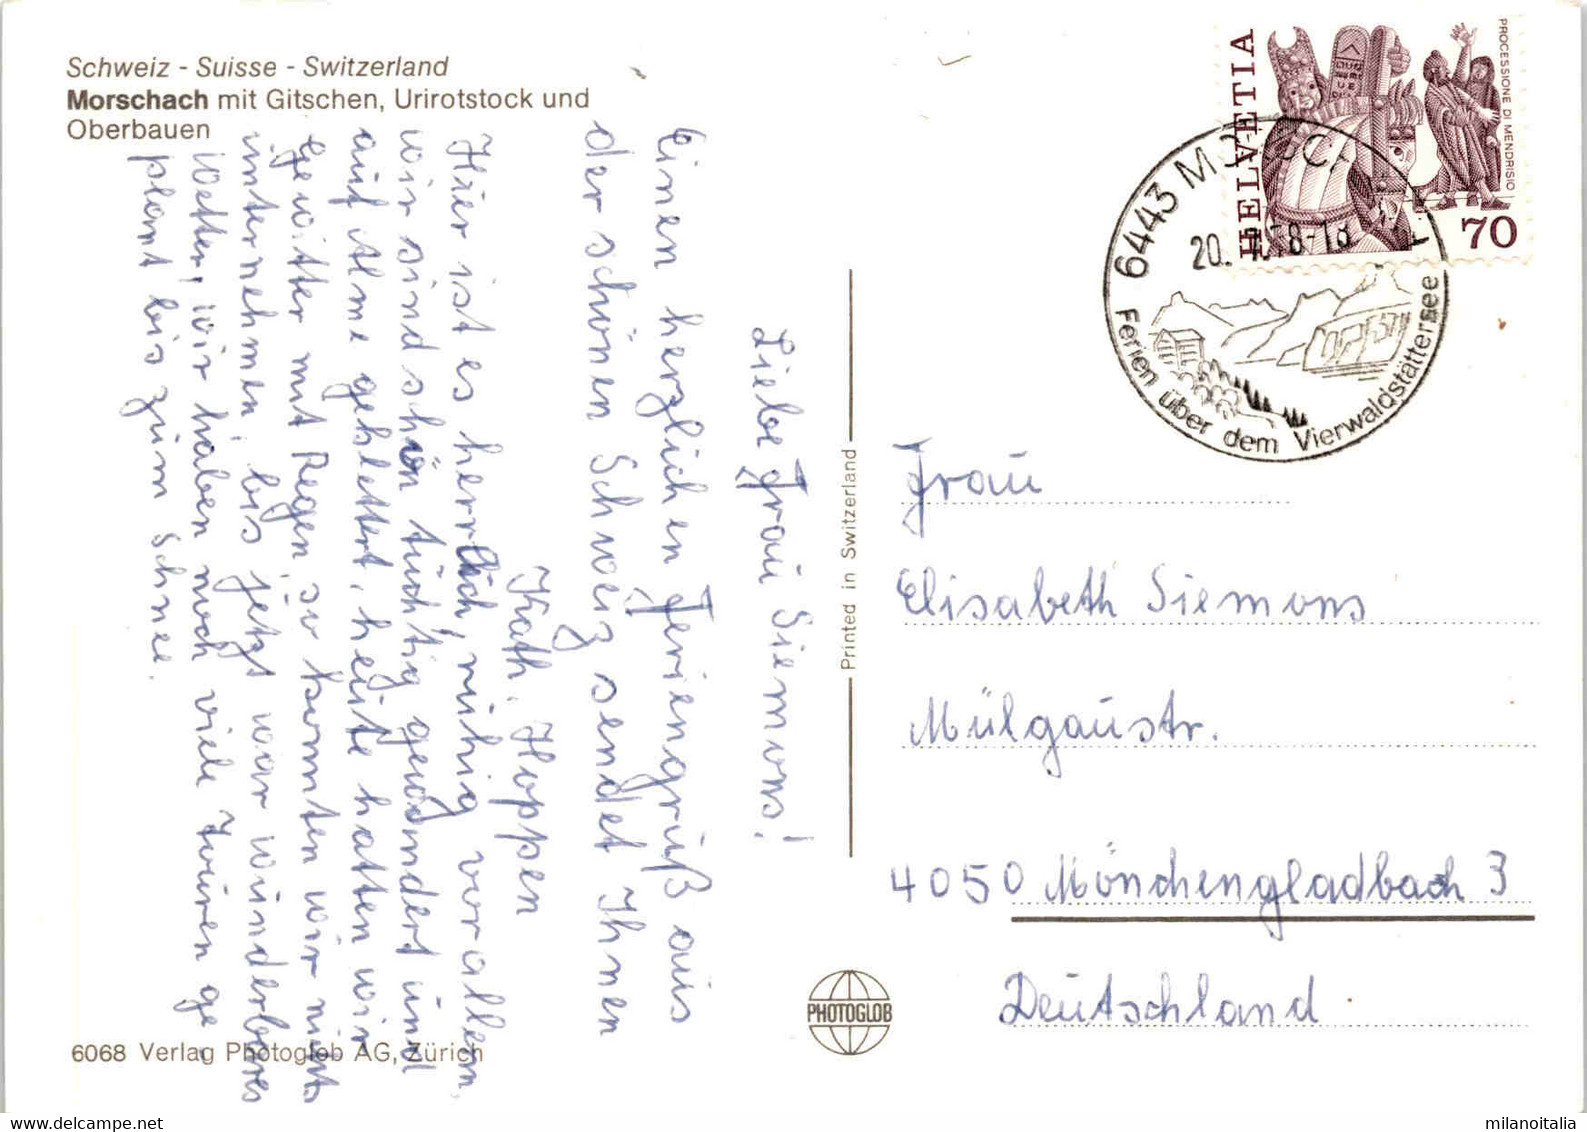 Schweiz - Suisse - Switzerland
Morschach mit Gitschen, Urirotstock und
Oberbauen
Liebe Frau Siemons!
Einen herzlichen Feriengruß aus
der schönen Schweiz sendet Ihnen
Kath. Hoppen
Hier ist es herrlich, ruhig vor allem,
wir sind schön tüchtig gewandert und
auf Alme geklettert, heute hatten wir
Gewitter mit Regen, so konnten wir nichts
unternehmen, bis jetzt war wunderbares
Wetter, wir haben noch viele Turen ge
plant bis zum Schnee.
6068 Verlag Photoglob AG, Zürich
Printed in Switzerland
PHOTOGLOB
HELVETIA
PROCESSIONE DI MENDRISIO
70
6443 M
20. 78-18
Ferien über dem Vierwaldstättersee
Frau
Elisabeth Siemons
Mülgaustr.
4050 Mönchengladbach 3
Deutschland
milanoitalia